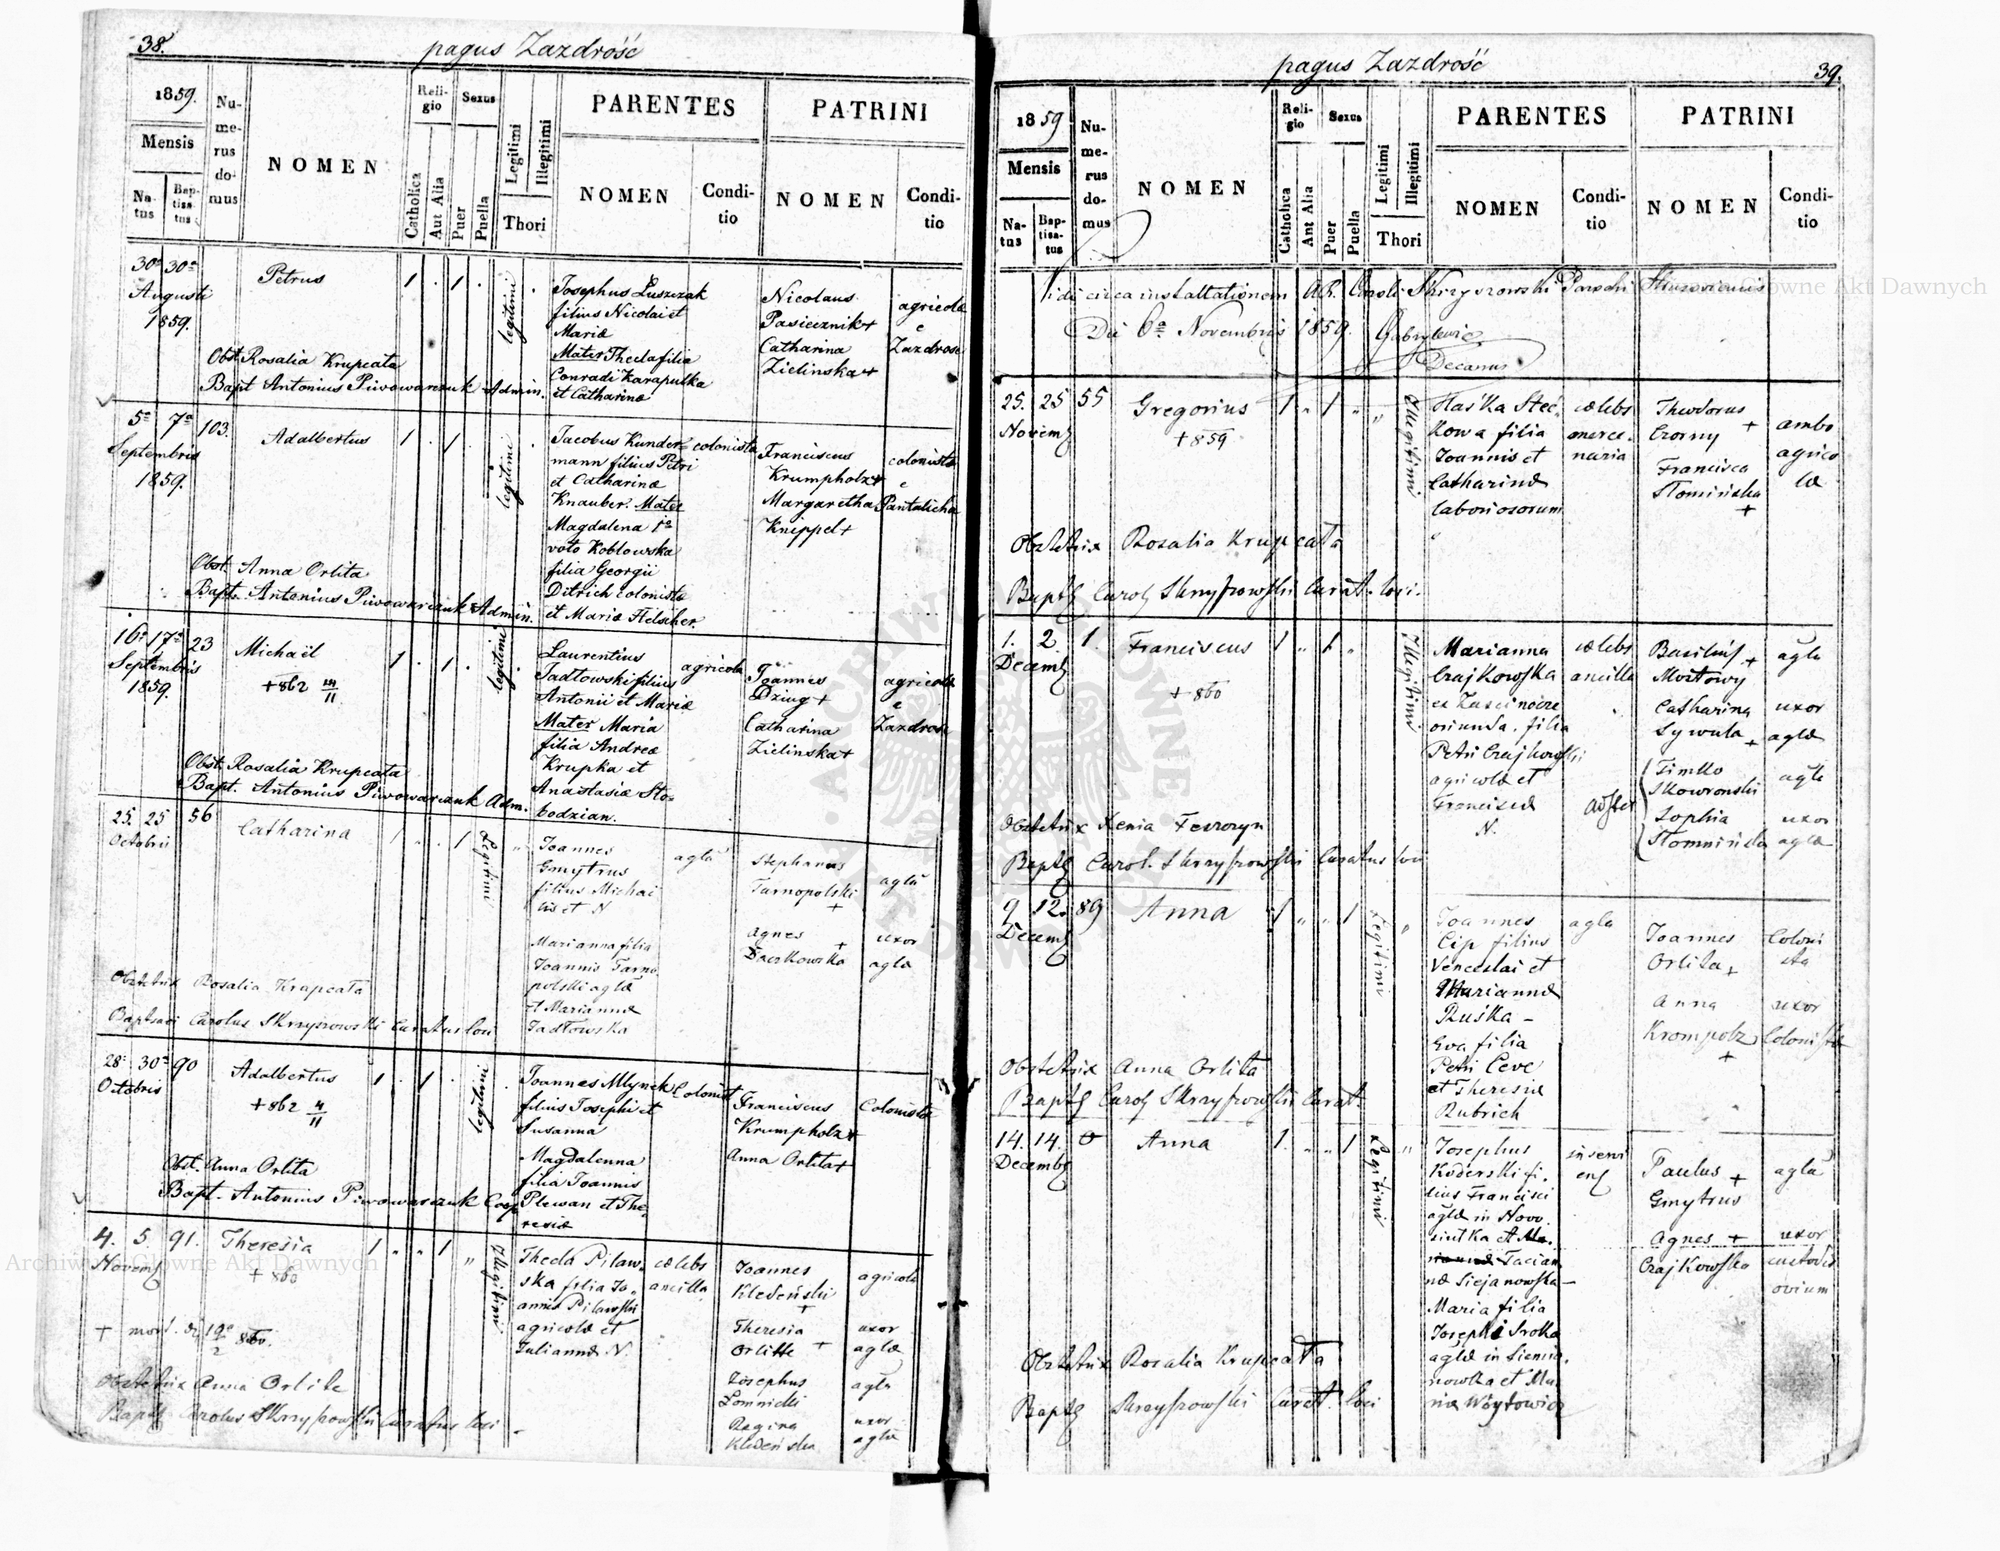 38.
pagus Zazdrość
1859.
Mensis
Na-
tus
Bap-
tisa-
tus
Nu-
me-
rus
do-
mus
NOMEN
Reli-
gio
Catholica
Aut Alia
Sexus
Puer
Puella
Legitimi
Illegitimi
Thori
PARENTES
NOMEN
Condi-
tio
PATRINI
NOMEN
Condi-
tio
30a 30a
Augusti
1859.
Petrus
1 . 1 .
legitimi
Josephus Luszczak
filius Nicolai et
Mariæ
Mater Thecla filia
Conradi Karapulka
et Catharinæ
Nicolaus
Pasiecznik +
Catharina
Zielinska +
agricolæ
e
Zazdrosc
Obst. Rosalia Krupcata
Bapt Antonius Piwowarczuk Admin.
5a 7a 103.
Septembris
1859.
Adalbertus
1 . 1 .
legitimi
Jacobus Kunder=
mann filius Petri
et Catharinæ
Knauber. Mater
Magdalena 1o
voto Koblowska
filia Georgii
Ditrich colonista
et Mariæ Fleischer.
colonista
Franciscus
Krumpholz +
Margaretha
Knippel +
colonistæ
e
Pantalicha
Obst. Anna Orlita
Bapt. Antonius Piwowarczuk Admin.
16a 17a 23
Septembris
1859.
Michaël
+ 862
1 . 1 .
legitimi
Laurentius
Jadłowski filius
Antonii et Mariæ
Mater Maria
filia Andreæ
Krupka et
Anastasiæ Sto=
bodzian.
agricola
Joannes
Dziug +
Catharina
Zielinska +
agricolæ
e
Zazdrosc
Obst. Rosalia Krupcata
Bapt. Antonius Piwowarczuk Adm.
25. 25 56
Octobris
Catharina
1 . . 1
Legitimi
Joannes
Gmytrus
filius Michae
lis et N
Marianna filia
Joannis Tarno
polski aglæ
et Mariannæ
Jadłowska
agla
Stephanus
Tarnopolski
+
Agnes +
Daczkowska
agla
uxor
aglæ
Obstetrix Rosalia Krupcata
Baptisavi Carolus Skrzyszowski Curatus loci
28a 30a 90
Octobris
Adalbertus
+ 862 4/11
1 . 1 .
legitimi
Joannes Mlynek
filius Josephi et
Susanna
Magdalenna
filia Joannis
Plewan et The=
resiæ
Colonist
Franciscus
Krumpholz +
Anna Orlita +
Colonistæ
Obst. Anna Orlita
Bapt. Antonius Piwowarczuk Coop
4. 5. 91.
Novemb
Theresia
+ 860
1 " " 1 "
Illegitimi
Thecla Piław=
ska filia Jo=
annis Piławski
agricolæ et
Juliannæ N.
cælebs
ancilla
Joannes
Kledeński
+
Theresia
Orlitte +
Josephus
Łomnicki
Regina
Kledeńska
agricola
uxor
aglæ
agla
uxor
aglæ
+ mort.
860.
Obstetrix Anna Orlite
Bapt Carolus Skrzyszowski Curatus loci
pagus Zazdrość
39.
1859
Mensis
Na-
tus
Bap-
tisa-
tus
Nu-
me-
rus
do-
mus
NOMEN
Reli-
gio
Catholica
Ant Alia
Sexus
Puer
Puella
Legitimi
Illegitimi
Thori
PARENTES
NOMEN
Condi-
tio
PATRINI
NOMEN
Condi-
tio
Vidi circa installationem A.R. Caroli Skrzyszowski Parochi Strusoviensis
Die 6a Novembris 1859.
Decanus
25. 25 55
Novemb
Gregorius
+ 859
1 " 1 " "
Illegitimi
Haśka Stec=
kowa filia
Joannis et
Catharinæ
laboriosorum
cælebs
merce=
naria
Theodorus
Czorny +
Francisca
Słomińska
+
ambo
agrico
læ
Obstetrix Rosalia Krupcata
Baptz Carol Skrzyszowski Curat. loci.
1. 2. 1.
Decemb
Franciscus
+ 860
1 " 1 "
Illegitimi
Marianna
Czajkowska
ex Zascinocze
oriunda, filia
Petri Czajkowski
agricolæ et
Franciscæ
N.
cælebs
ancilla
Basilius +
Mostowy
Catharina
Sywula +
Timko
Skowronski
Sophia
Słomnińska
agla
uxor
aglæ
agla
uxor
aglæ
Obstetrix Xenia Fedoryn
Baptz Carol. Skrzyszowski Curatus loci
9. 12. 89
Decemb
Anna
1 " " 1
Legitimi
"
Joannes
Cip filius
Venceslai et
Mariannæ
Ruska –
Eva filia
Petri Ceve
et Theresiæ
Rubrich
agla
Joannes
Orlita +
Anna
Krompolz
+
Coloni
sta
uxor
Colonistæ
Obstetrix Anna Orlita
Baptz Carol Skrzyszowski Curat.
14. 14. 0
Decemb
Anna
1. " " 1
Legitimi
"
Josephus
Koderski fi=
lius Francisci
aglæ in Novo
siułka et
Tacian
næ Siejanowska –
Maria filia
Josephi Sroka
aglæ in Siemia=
nowka et Ma=
riæ Woytowicz
inservi
ens
Paulus +
Gmytrus
Agnes +
Czajkowska
agla
uxor
custodis
ovium
Obstetrix Rosalia Krupcata
Baptz Skrzyszowski Curat. loci
Archiwum Główne Akt Dawnych